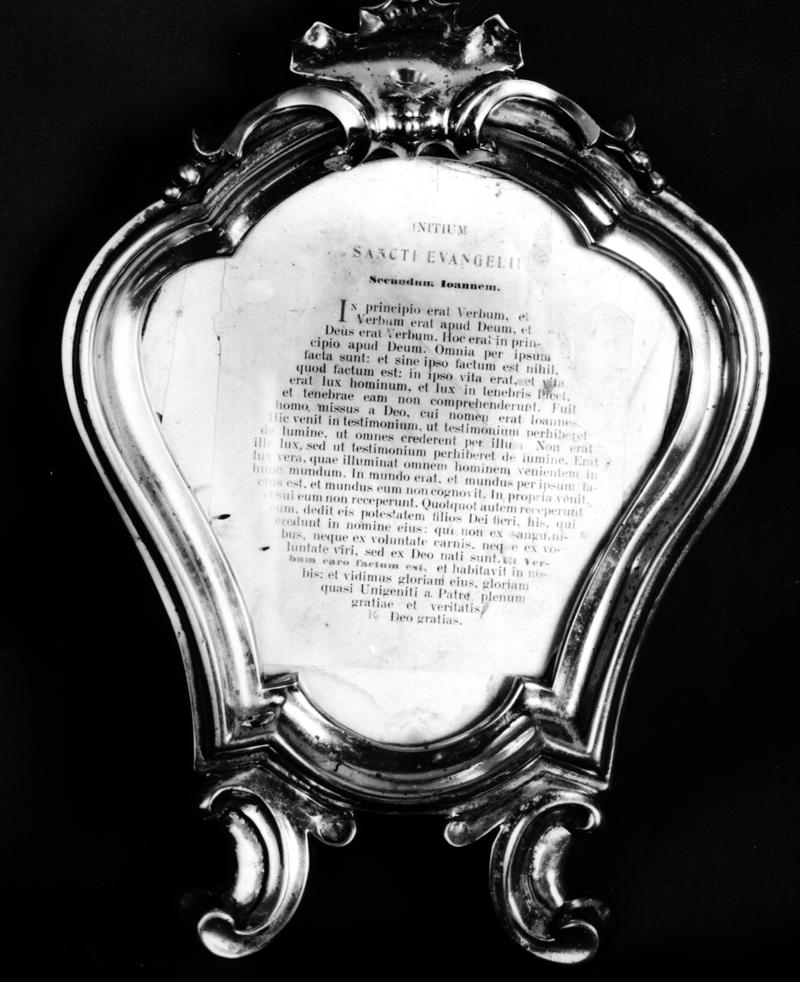 INITIUM
SANCTI EVANGELII
Secundum Ioannem.
IN principio erat Verbum, et
Verbum erat apud Deum, et
Deus erat Verbum. Hoc erat in prin-
cipio apud Deum. Omnia per ipsum
facta sunt: et sine ipso factum est nihil,
quod factum est: in ipso vita erat, et vita
erat lux hominum, et lux in tenebris lucet,
et tenebrae eam non comprehenderunt. Fuit
homo missus a Deo, cui nomen erat Ioannes.
Hic venit in testimonium, ut testimonium perhiberet
de lumine, ut omnes crederent per illum. Non erat
ille lux, sed ut testimonium perhiberet de lumine. Erat
lux vera, quae illuminat omnem hominem venientem in
hunc mundum. In mundo erat, et mundus per ipsum fa-
ctus est, et mundus eum non cognovit. In propria venit,
et sui eum non receperunt. Quotquot autem receperunt
eum, dedit eis potestatem filios Dei fieri, his, qui
credunt in nomine eius: qui non ex sanguini-
bus, neque ex voluntate carnis, neque ex vo-
luntate viri, sed ex Deo nati sunt. Et Ver-
bum caro factum est, et habitavit in no-
bis: et vidimus gloriam eius, gloriam
quasi Unigeniti a Patre, plenum
gratiae et veritatis,
R. Deo gratias.